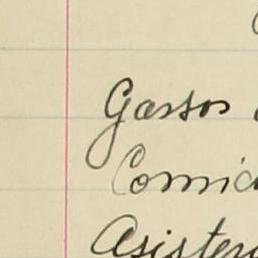 Gastos
Comid
Asisten